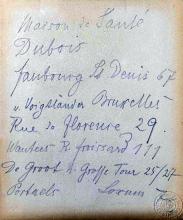 Maison de Santé
Dubois
faubourg St Denis 67
v. Voigtländer Bruxelles
Rue de florence 29.
Wauters R froissard 111
De Groot h. Grosse Tour 25/27
Portaels